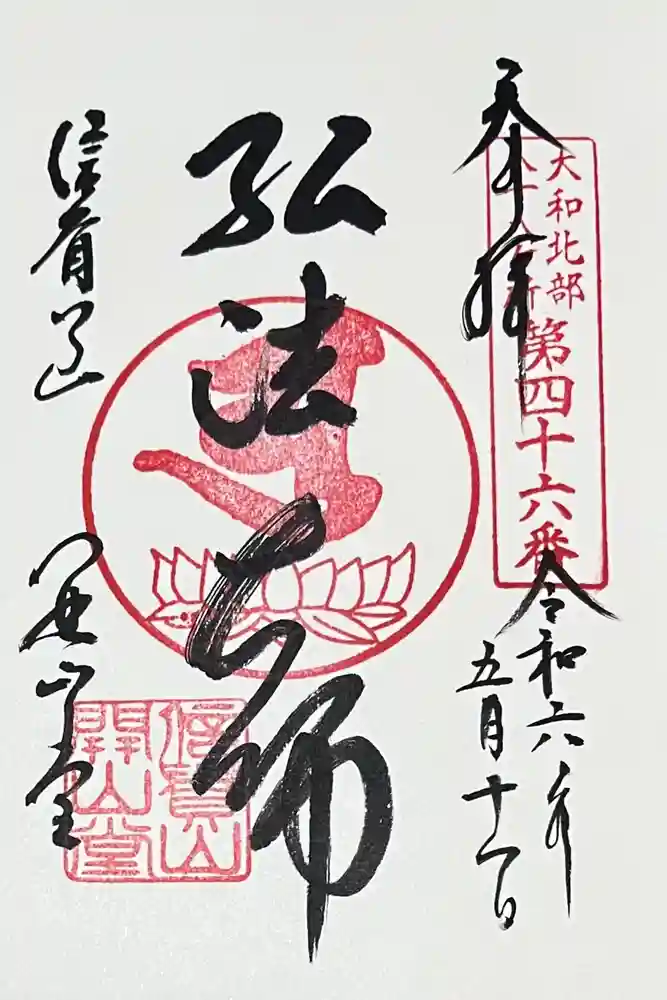 奉拝
大和北部
八十八ヶ所
第四十六番
令和六年
五月十一日
弘法大師
信貴山
開山堂
信貴山
開山堂